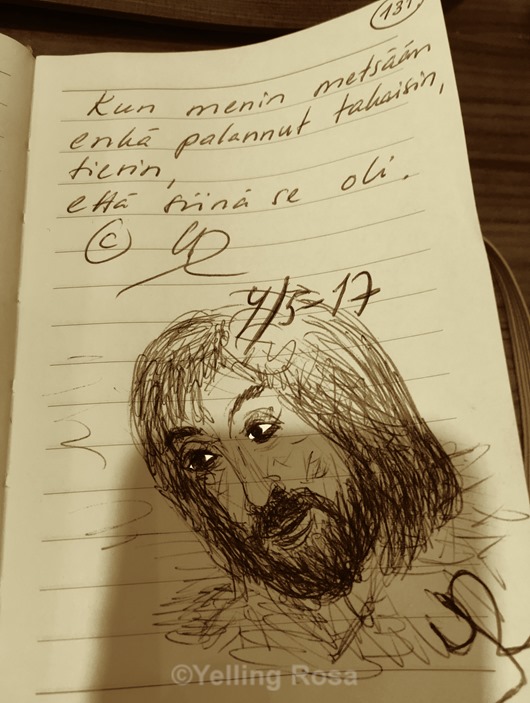 137
Kun menin metsään
enkä palannut takaisin,
tiesin,
että siinä se oli.
© YR
4/5-17
YR
©Yelling Rosa